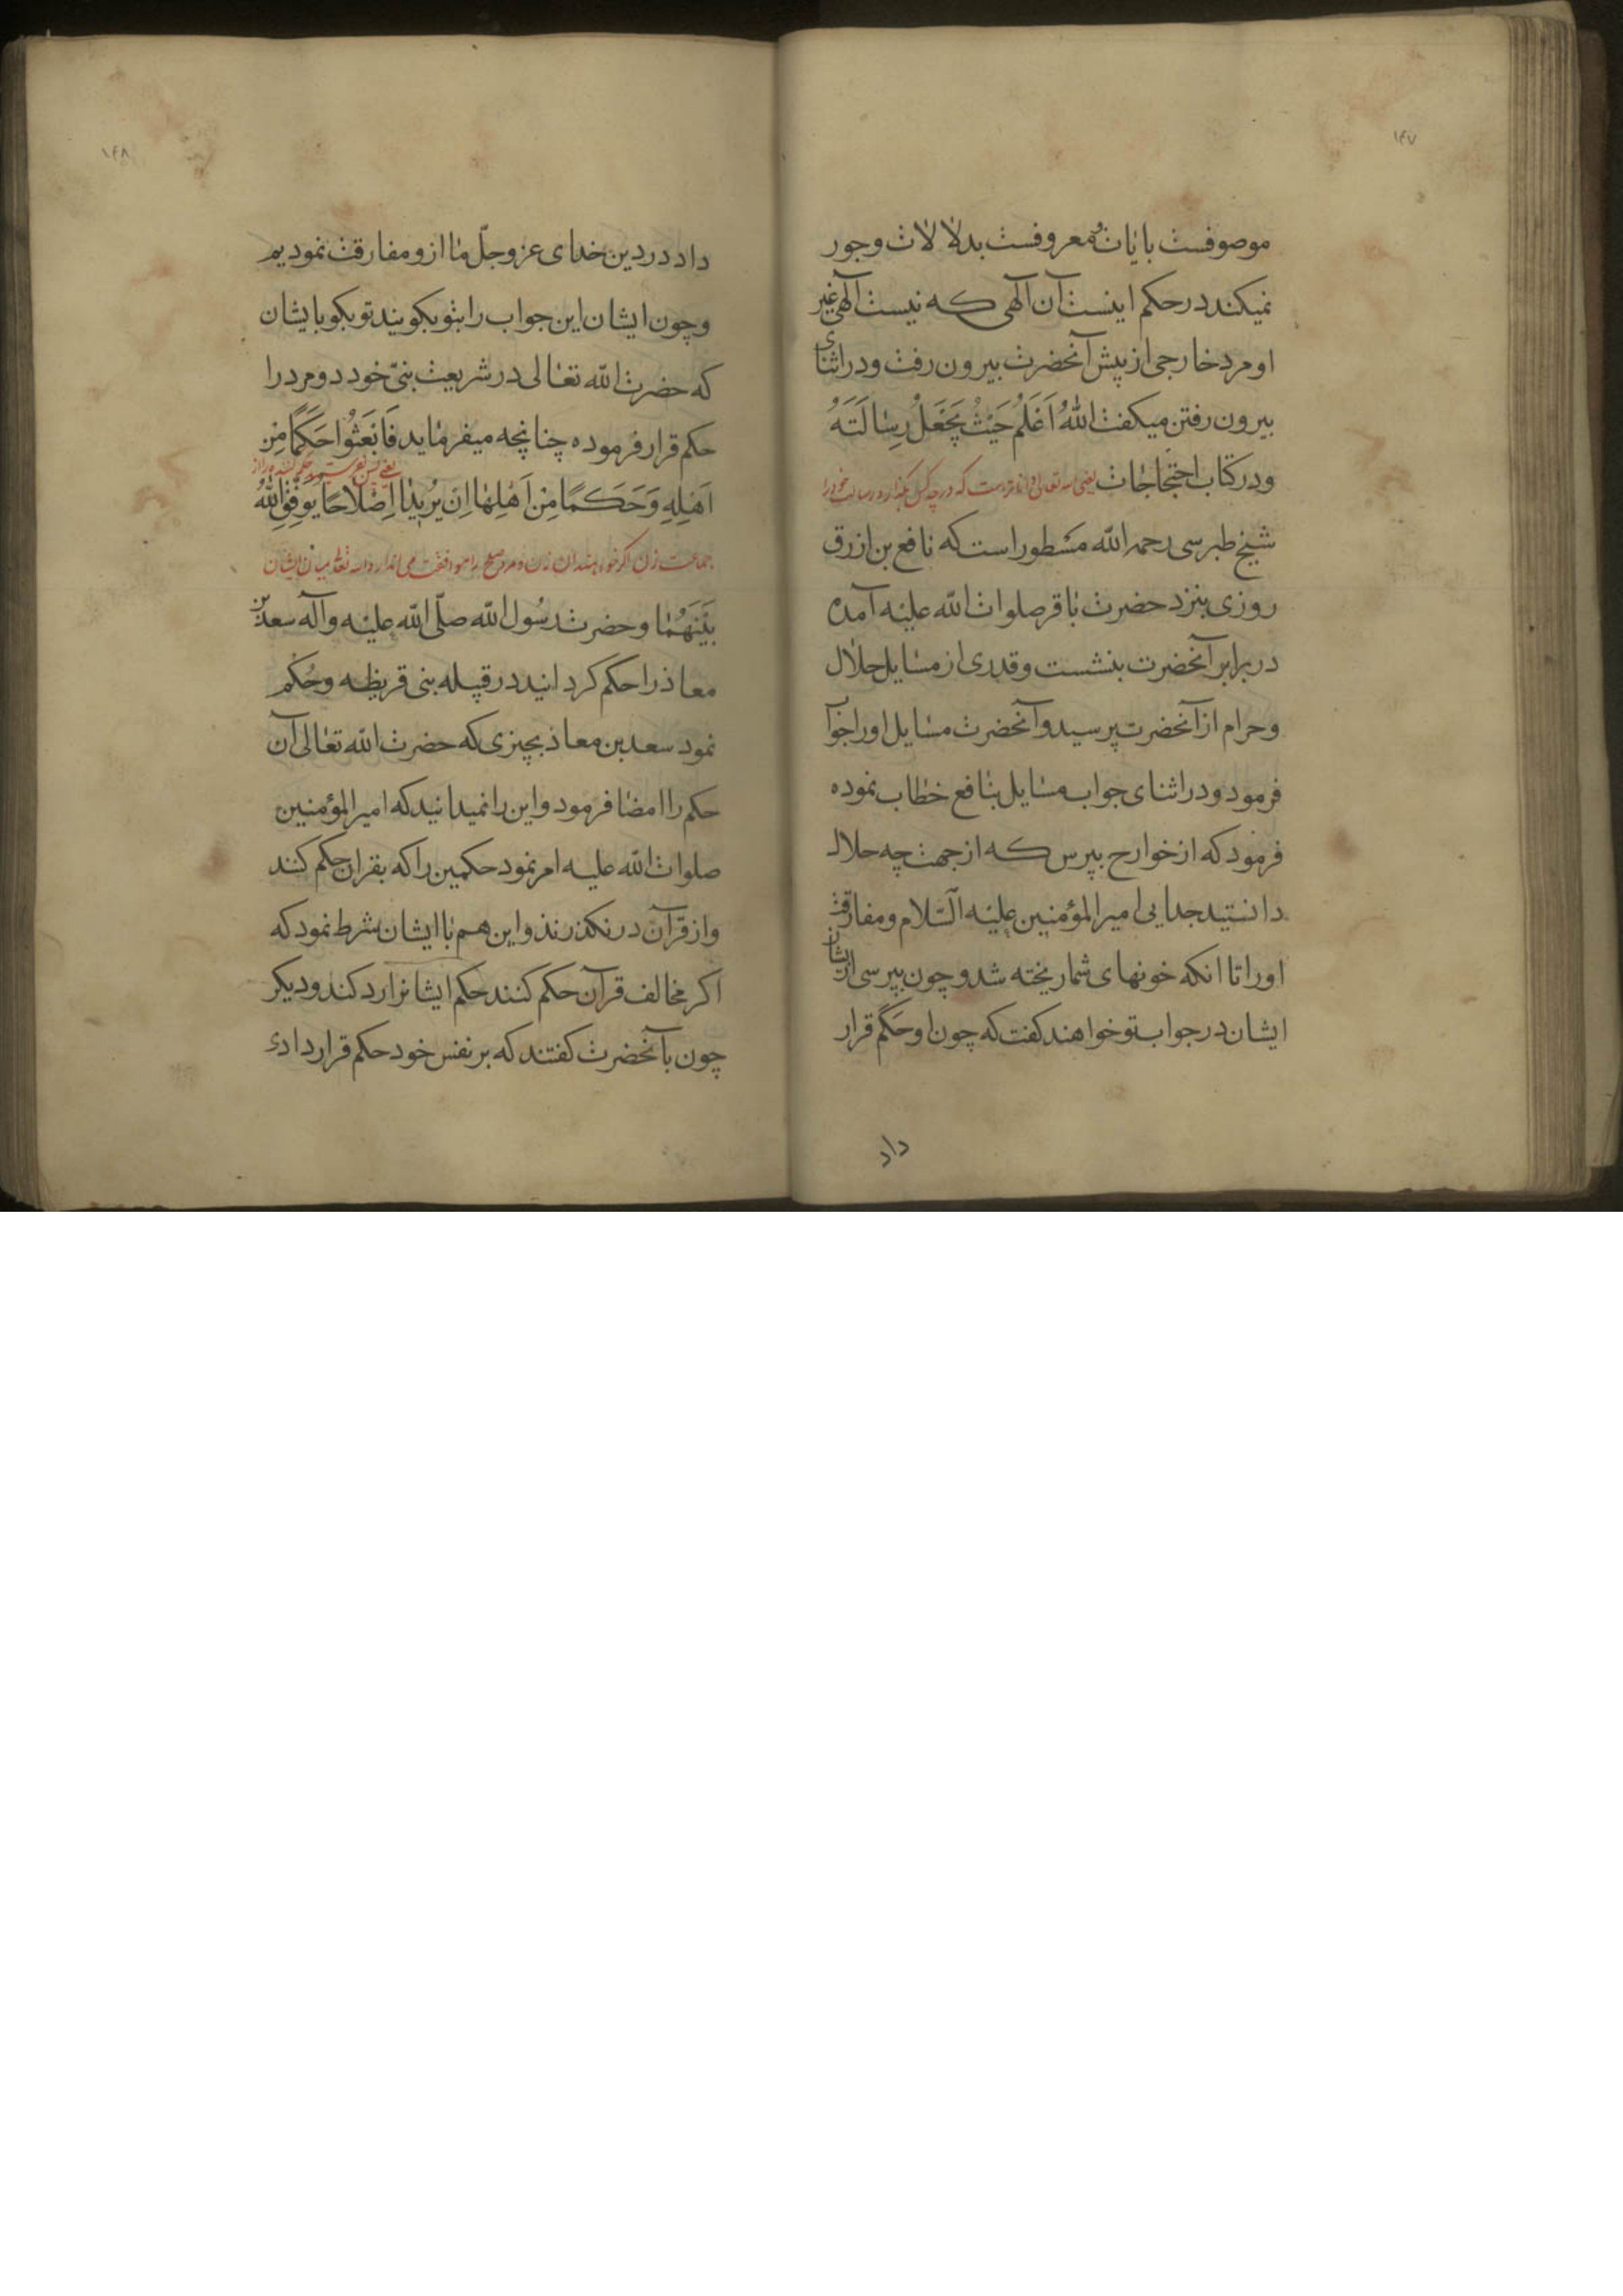 ۱۴۷
موصوفست بایات و معروفست بدلالات وجور
نمیکند در حکم اینست آن آلهی که نیست آلهی غیر
او مرد خارجی از پیش آنحضرت بیرون رفت و در اثنای
بیرون رفتن میکفت اَللهُ اَعْلَمُ حَیْثُ یَجْعَلُ رِسٰالَتَهُ
ودر کتاب احتجاجات یعنی الله تعالی داناتر است که در چه کس بگذارد رسالت خود را
شیخ طبرسی رحمه الله مسطور است که نافع بن ازرق
روزی بنزد حضرت باقر صلوات الله علیه آمده
در برابر آنحضرت بنشست و قدری از مسایل حلال
وحرام از آنحضرت پرسید و آنحضرت مسایل او را جواب
فرمود و در اثنای جواب مسایل بنافع خطاب نموده
فرمود که از خوارج بپرس که از جهت چه حلال
دانستید جدایی امیرالمؤمنین علیه السّلام و مفارقت
اورا تا انکه خونهای شما ریخته شد و چون بپرسی از ایشان
ایشان در جواب تو خواهند کفت که چون او حَکَم قرار
داد
۱۴۸
داد در دین خدای عز وجلّ ما از و مفارقت نمودیم
وچون ایشان این جواب را بتو بکویند تو بکو بایشان
که حضرت الله تعالی در شریعت بنیّ خود دو مرد را
حکم قرار فرموده چنانچه میفرماید فَابْعَثُوا حَکَمًا مِن
یعنی پس بفرستید حکم کننده را از
اَهْلِهِ وَحَکَمًا مِنْ اَهْلِهٰا اِن یُرِیدٰا اِصْلاحًا یُوَفِّقِ اللهُ
جماعت زن اکر خواهند ان زن و مرد صلح را موافقت می اندازد الله تعالی میان ایشان
بَیْنَهُمٰا وحضرت رسُول الله صلّی الله علیه وآله سعد بن
معاذ را حکم کردانید در قبیله بنی قریظه وحُکم
نمود سعد بن معاذ بچیزی که حضرت الله تعالی آن
حکم را امضا فرمود و این را نمیدانید که امیرالمؤمنین
صلوات الله علیه امر نمود حکمین را که بقران حکم کنند
و از قرآن در نکذرند و این هم با ایشان شرط نمود که
اکر مخالف قرآن حکم کنند حکم ایشانرا رد کند و دیکر
چون بآنحضرت کفتند که بر نفس خود حکم قرار دادی